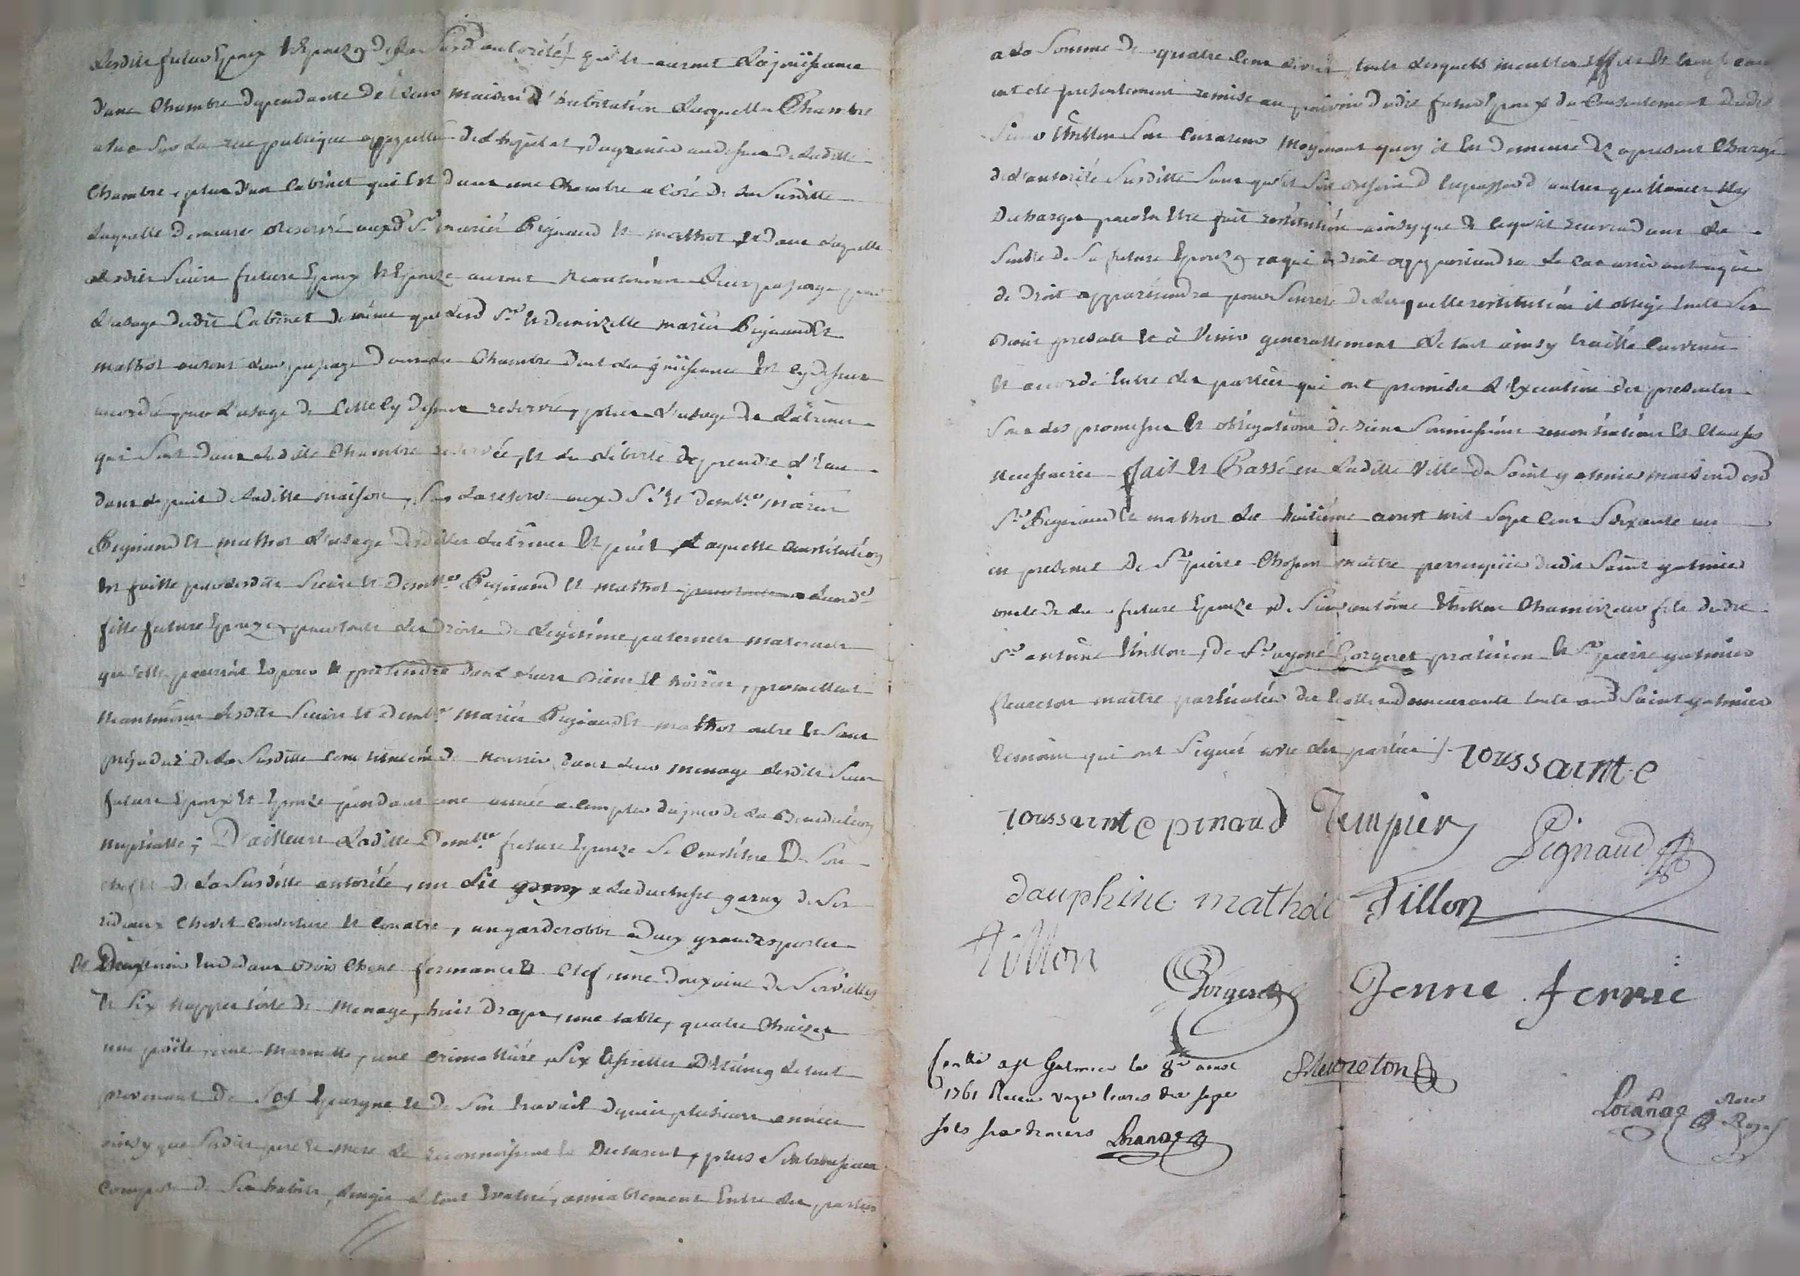 Lesdits futur Epoux et Epouze de la susd autorité, qu'ils auront la jouissance
d'une Chambre dependante de leur maison d'habitation laquelle Chambre
a vue sur la rue publique appellée de L'hopital, du grenier au dessus de laditte
Chambre, plus d'un Cabinet qui est dans une Chambre a Coté de la Susditte
Laquelle demeure reservé auxd Srs mariés Pignaud et mathot et dans laquelle
lesdits Sieur future Epoux et Epouze auront neantmoins Leur passage pour
L'usage dudit Cabinet de même que lesd Sr et demoizelle mariés Pignaud et
mathot auront leur passage dans la Chambre dont la jouissance est cy dessus
accordé pour L'usage de Celle cy dessus reservée, plus L'usage de
qui sont dans laditte Chambre reservée, et la liberté de prendre d'Eau
dans le puit de laditte maison, sous la reserve auxd Sr et demlle mariés
Pignaud et mathot L'usage desdittes et puit, Laquelle Constitution
est faitte par lesdits Sieur et Demlle Pignaud et mathot a leurd
fille future Epouze pour touts les droits de Legitime paternels maternels
qu'elle pourroit Esperer et pretendre dans leurs biens et hoiries, promettent
neantmoins lesdits Sieur et demlle mariés Pignaud et mathot outre et sans
préjudice de la Susditte Constitution de nourrir dans leur menage lesdits Sieur
futur Epoux et Epouze pendant une année a Compter du jour de la Benediction
nuptialle; D'ailleurs Laditte Demlle future Epouze se Constitue De son
chef et de la Susditte autorité, un Lit garny a la duchesse garny de ses
rideaux Chevet Couverture et Coulatre, un garderobbe a deux grandes portes
de bois Chene fermant a Clef, une douzaine de Serviettes
et six nappes toile de menage, huit draps, une table, quatre Chaizes
une poële, une marmitte, une Crimalliere, Six assiettes D'Etaing le tout
provenant de Ses Epargne et de Son travail depuis plusieurs années
ainsy que Sesdits pere et mere le reconnoissent et Declarent, plus Son trousseau
Composé de Ses habits, Linges le tout Evalué, amiablement Entre les parties
a La Somme de quatre Cent Livres, touts Lesquels meubles Effets et trousseau
ont été presentement remis au pouvoir dudit futur Epoux du Consentement dudit
Sieur Tillon Son Curateur moyenant quoy il est demeuré des apresent Chargé
de l'autorité Susditte Sans qu'il Soit besoin d'en passer d'autre quittance ny
décharge pour en Etre fait restitution ainsy que de ce qu'il recevra dans la
Suitte de Sa future Epouze, a qui de droit appartiendra le cas arrivant a qui
de droit appartiendra pour Sureté de laquelle restitution il oblige touts Ses
Biens presents et à Venir generallement Le tout ainsy traitté Convenu
et accordé Entre les parties qui ont promises L'Execution des presentes
Sous les promesses et obligations de Biens Soumissions renontiations et Clauses
necessaires fait et Passé en Laditte Ville de Saint galmier maison desd
Srs Pignaud et mathot Le huitieme aoust mil Sept Cent Soixante un
en presence de Sr pierre Chosson maitre perruquier dudit Saint galmier
oncle de la future Epouze, de Sieur antoine Tillon Chamoizeur fils dudit
Sr antoine Tillon, de Sr Gorgeret praticien et Sr pierre galmier
fleureton maître particulier demeurants touts aud Saint galmier
temoins qui ont Signés avec les parties /. toussainte
toussainte pinaud Tempier Pignaud
dauphine mathot Tillon
Tillon
Gorgeret Jenne ferrié
Conllé a St Galmier le 8e aoust
fleureton
1761 Receu unze livres dix sept
Locanas
sols six deniers Locanas